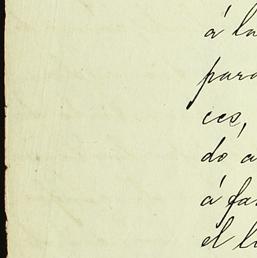 á la
para
ces,
do a
á fa
el l